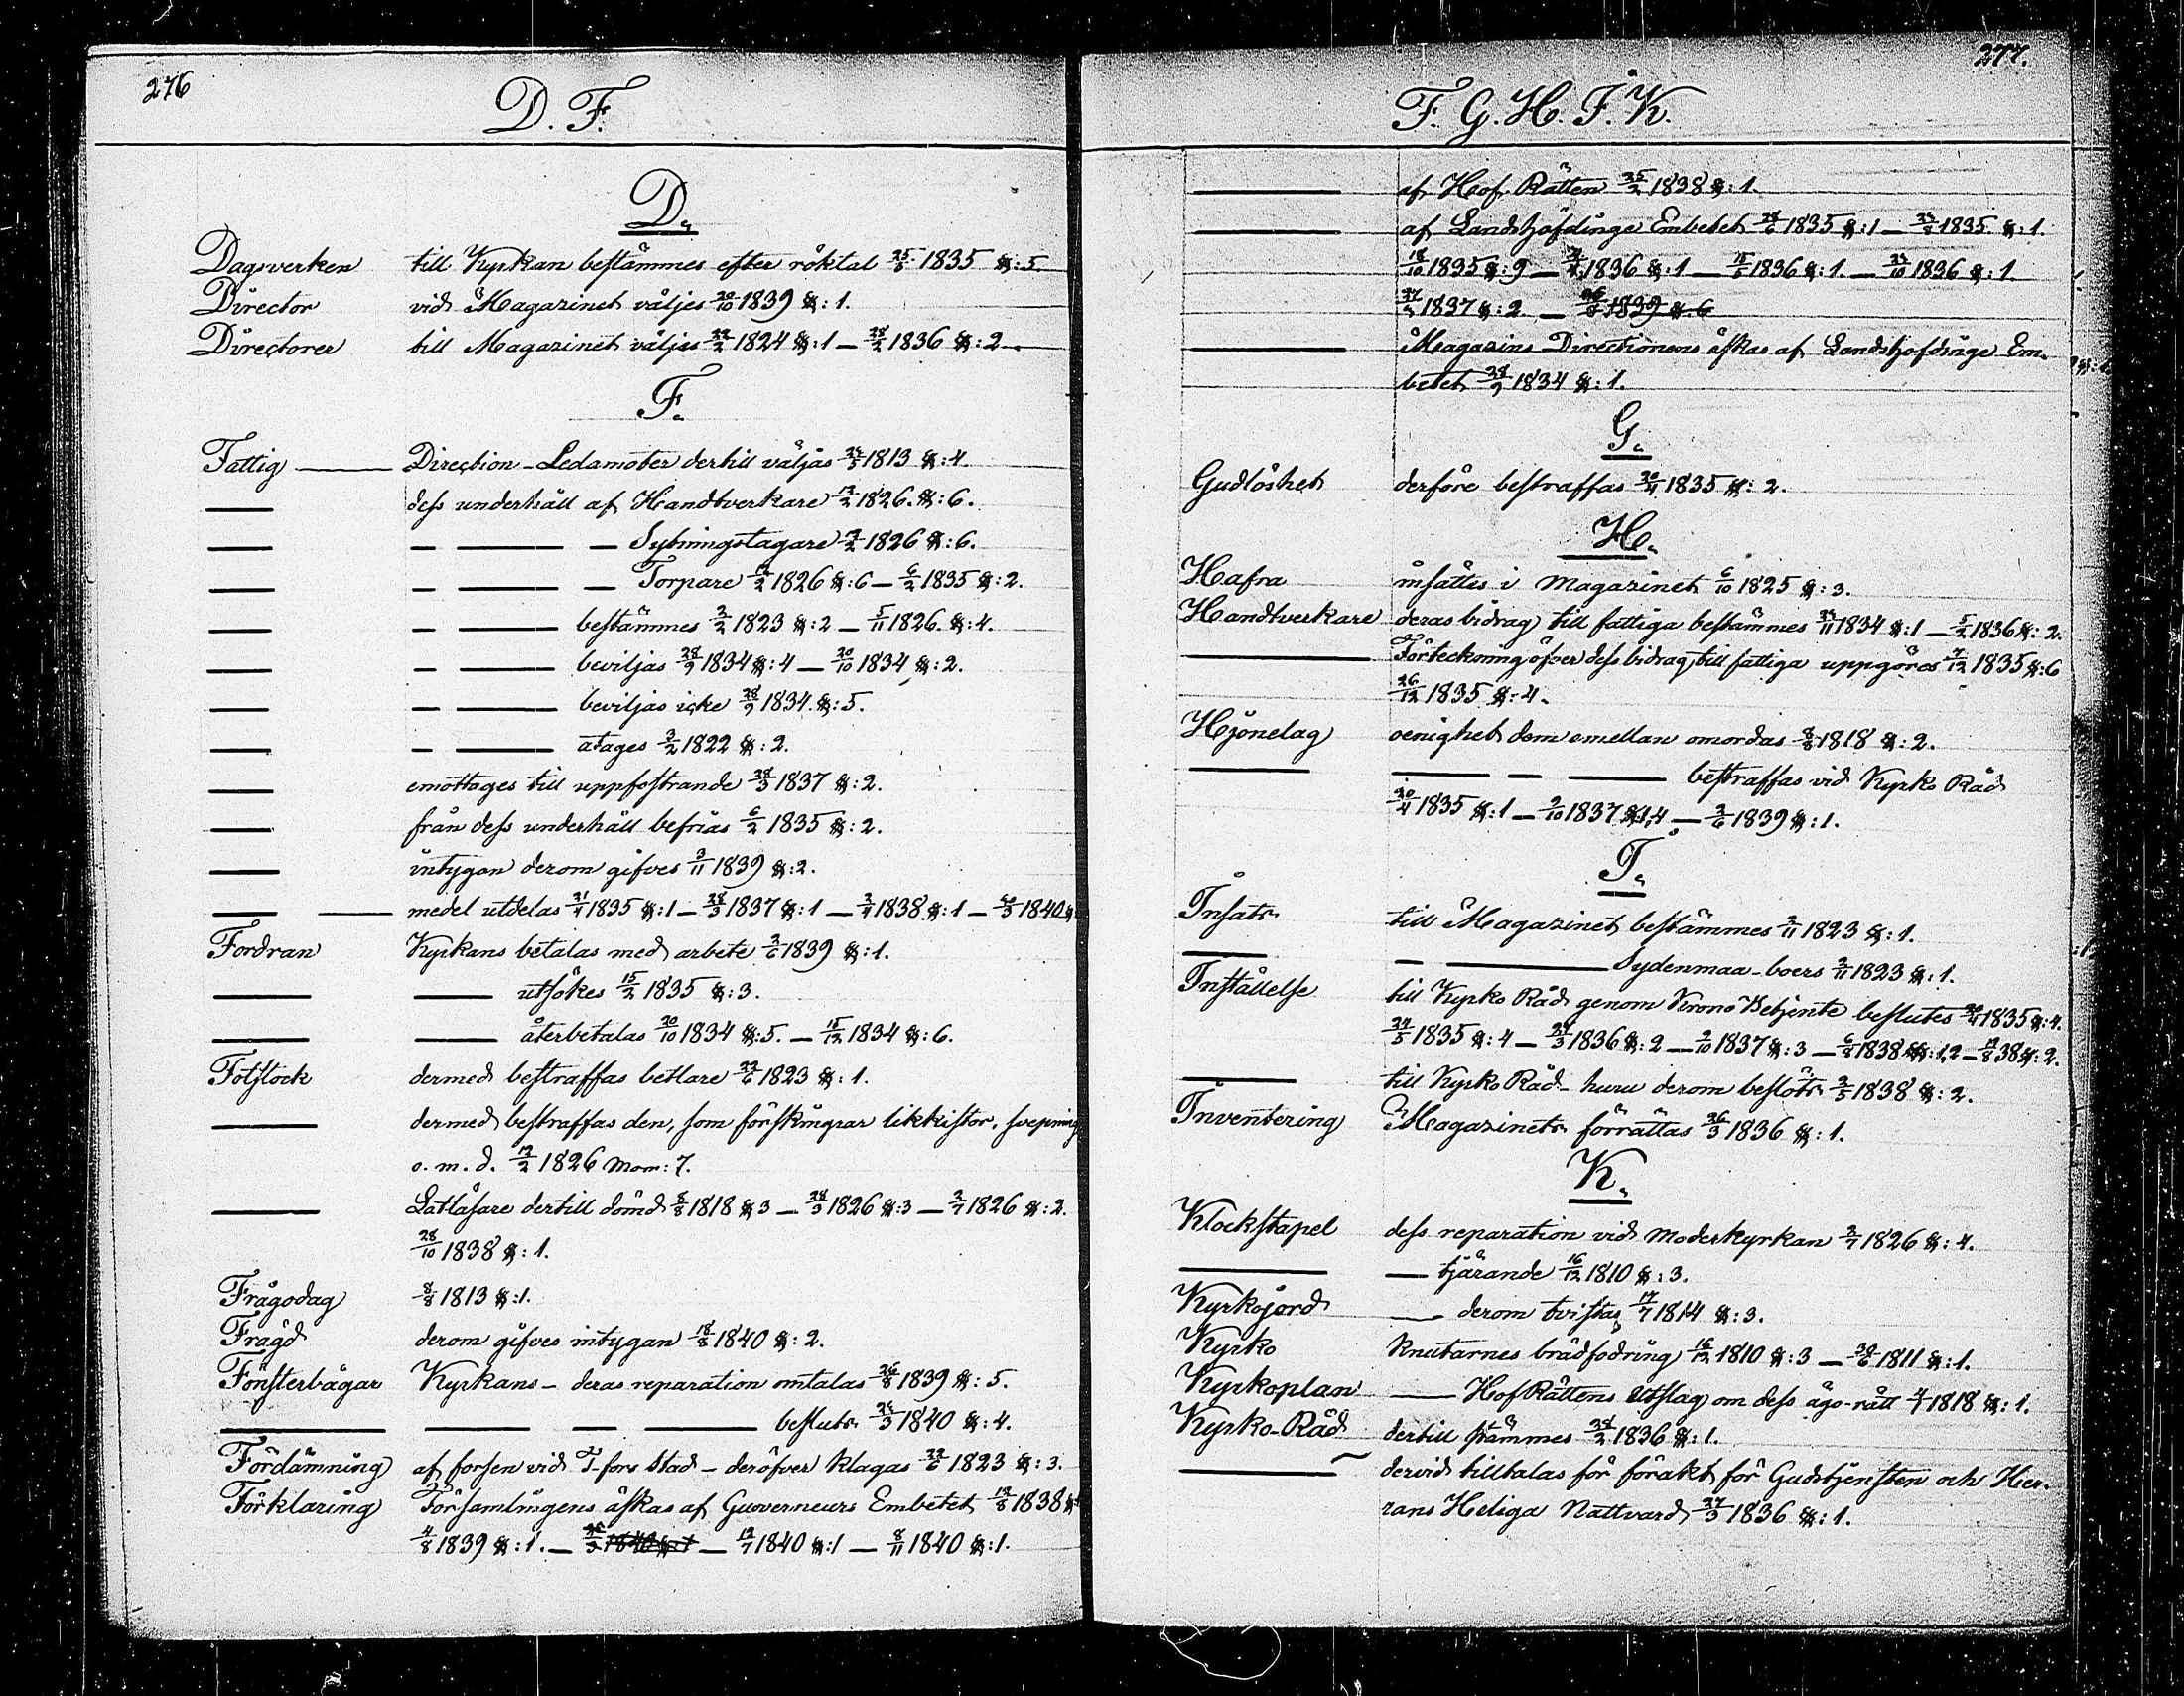 276
D. F.
D.
Dagsverken till Kyrkan bestämmes efter röktal 25/5 1835 §:5.
Director vid Magazinet väljes 20/10 1839 §:1.
Directorer till Magazinet väljes 22/2 1824 §:1 — 28/2 1836 §:2.
F.
Fattig — Direction-Ledamöter dertill väljas 24/5 1813 §:4.
— dess underhåll af Handtverkare 12/2 1826. §:6.
— — — — Sytningstagare 12/2 1826 §:6.
— — — — Torpare 12/2 1826 §:6 — 6/2 1835 §:2.
— — — bestämmes 2/2 1823 §:2 — 5/11 1826. §:4.
— — — beviljas 28/9 1834 §:4 — 20/10 1834 §:2.
— — — beviljas icke 28/9 1834. §:5.
— — — atages 3/2 1822 §:2.
— emottoges till uppfostrande 28/3 1837 §:2.
— från dess underhåll befrias 6/2 1835 §:2.
— intygan derom gifves 3/11 1839 §:2.
— — medel utdelas 21/4 1835 §:1 — 28/3 1837 §:1 — 2/4 1838 §:1 — 1840 §
Fordran Kyrkans betalas med arbete 2/6 1839 §:1.
— — utsökes 15/2 1835 §:3.
— — återbetalas 20/10 1834 §:5. — 15/12 1834 §:6.
Fotstock dermed bestraffas betlare 22/6 1823 §:1.
— dermed bestraffas den, som förskingrar likkistor, svepning
o. m. d. 12/2 1826 mom: 7.
— Latläsare dertill dömd 8/8 1818 § 3 — 28/3 1826 §:3 — 2/7 1826 §:2.
28/10 1838 §:1.
Frågodag 8/8 1813 §:1.
Frägd derom gifves intygan 18/8 1840 §:2.
Fönsterbågar Kyrkans — deras reparation omtalas 26/8 1839 §:5.
— — — — besluts 24/3 1840 §:4.
Fördämning af forsen vid T-fors stad — deröfver klagas 22/6 1823 §:3.
Förklaring Församlingens äskas af Guverneurs Embetet 12/8 1838 §
4/8 1839 §:1. — — 12/7 1840 §:1 — 8/11 1840 §:1.
277.
F. G. H. I. K.
— af Hof Rätten 25/2 1838 §:1.
— af Landshöfdinge Embetet 28/6 1835 §:1 — 1835 §:1.
18/10 1835 §:9 — 1836 §:1 — 15/5 1836 §:1. — 1836 §:1
1837 §:2 — 1839 §:6
— Magazins Directionens äskas af Landshöfdinge Em-
betet 28/9 1834 §:1.
G.
Gudlöshet derföre bestraffas 20/4 1835 §:2.
H.
Hafra insättes i Magazinet 6/10 1825 §:3.
Handtverkare deras bidrag till fattiga bestämmes 24/11 1834 §:1 — 5/2 1836 §:2.
— Förteckning öfver dess bidrag till fattiga uppgöres 7/12 1835 §:6
26/12 1835 §:4.
Hjonelag oenighet dem emellan omordas 8/8 1818 §:2.
— — — — bestraffas vid Kyrko Råd
20/4 1835 §:1 — 2/10 1837 §:1,4 — 2/6 1839 §:1.
I.
Insats till Magazinet bestämmes 2/11 1823 §:1.
— — — Sydenmaa-boers 2/11 1823 §:1.
Inställelse till Kyrko Råd genom Krono Betjente beslutes 20/4 1835 §:4.
24/5 1835 §:4 — 27/3 1836 §:2 — 2/10 1837 §:3 — 6/8 1838 §§:1,2 — 12/8 38 §:2.
— till Kyrko Råd — huru derom beslöts 2/5 1838 §:2.
Inventering Magazinets förrättas 26/3 1836 §:1.
K.
Klockstapel dess reparation vid moderkyrkan 2/7 1826 §:4.
— — tjärande 16/12 1810 §:3.
Kyrkojord — derom tvistas 17/7 1814 §:3.
Kyrko Knutarnes brädfodring 16/12 1810 §:3 — 30/6 1811 §:1.
Kyrkoplan — HofRättens Utslag om dess ägo-rätt 4/7 1818 §:1.
Kyrko-Råd dertill stämmes 28/2 1836 §:1.
— dervid tilltalas för förakt för Gudstjensten och Her-
rans Heliga Nattvard 27/3 1836 §:1.